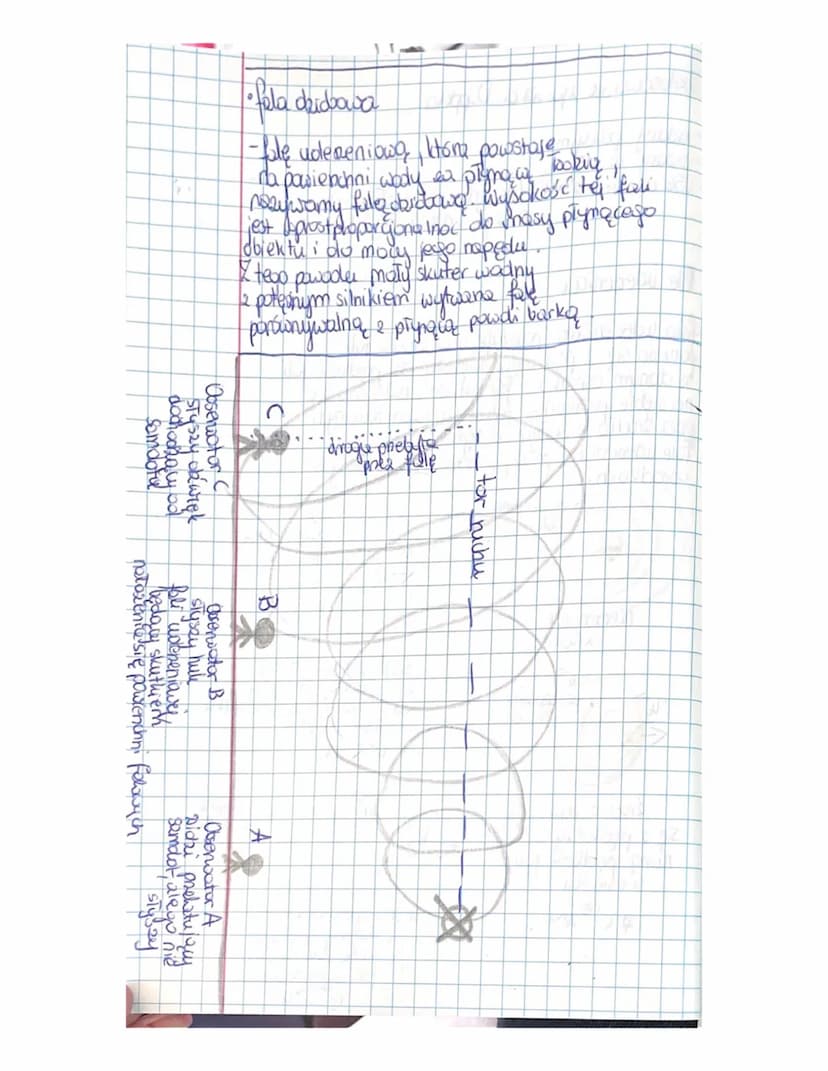 • fala dziobowa
- falę uderzeniową, która powstaje
na powierzchni wody za płynącą łodzią,
nazywamy falą dziobową. Wysokość tej fali
jest wprostproporcjonalnoć do masy płynącego
obiektu i do mocy jego napędu.
Z tego powodu mały skuter wodny
z potężnym silnikiem wytwarza falę
porównywalną z płynącą powoli barką.
C
droga przebyta
przez falę
tor ruchu
Obserwator C
słyszy dźwięk
dochodzący od
samolotu
B
Obserwator B
słyszy huk
fali uderzeniowej
będący skutkiem
nałożenia się powierzchni falowych
A
Obserwator A
widzi przelatujący
samolot, ale go nie
słyszy